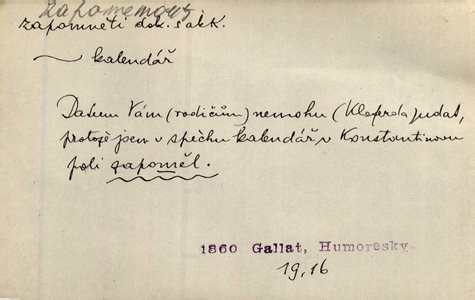 zapomenouti
zapomněti dok. s akk.
kalendář
Datum Vám (rodičům) nemohu (Kleferda) udat,
protože jsem v spěchu kalendář v Konstantinovu
poli zapoměl.
1860 Gallat, Humoresky.
19, 16